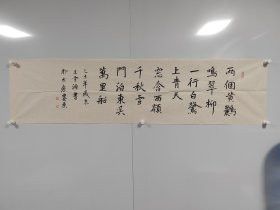 兩個黃鸝
鳴翠柳
一行白鷺
上青天
窓含西嶺
千秋雪
門泊東吳
萬里船